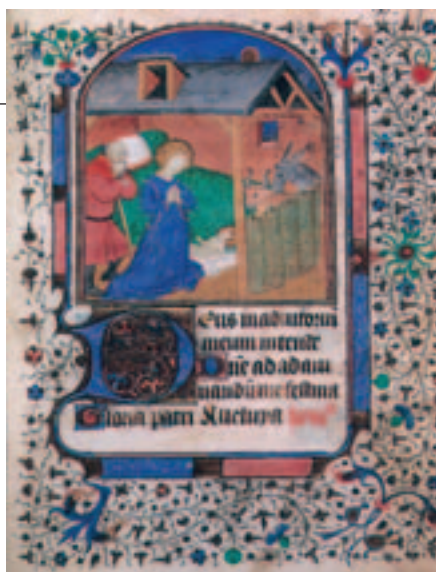 Deus in adiutoriū
meum intende
Dñe ad adiu
uandū me festina
Gloria patri